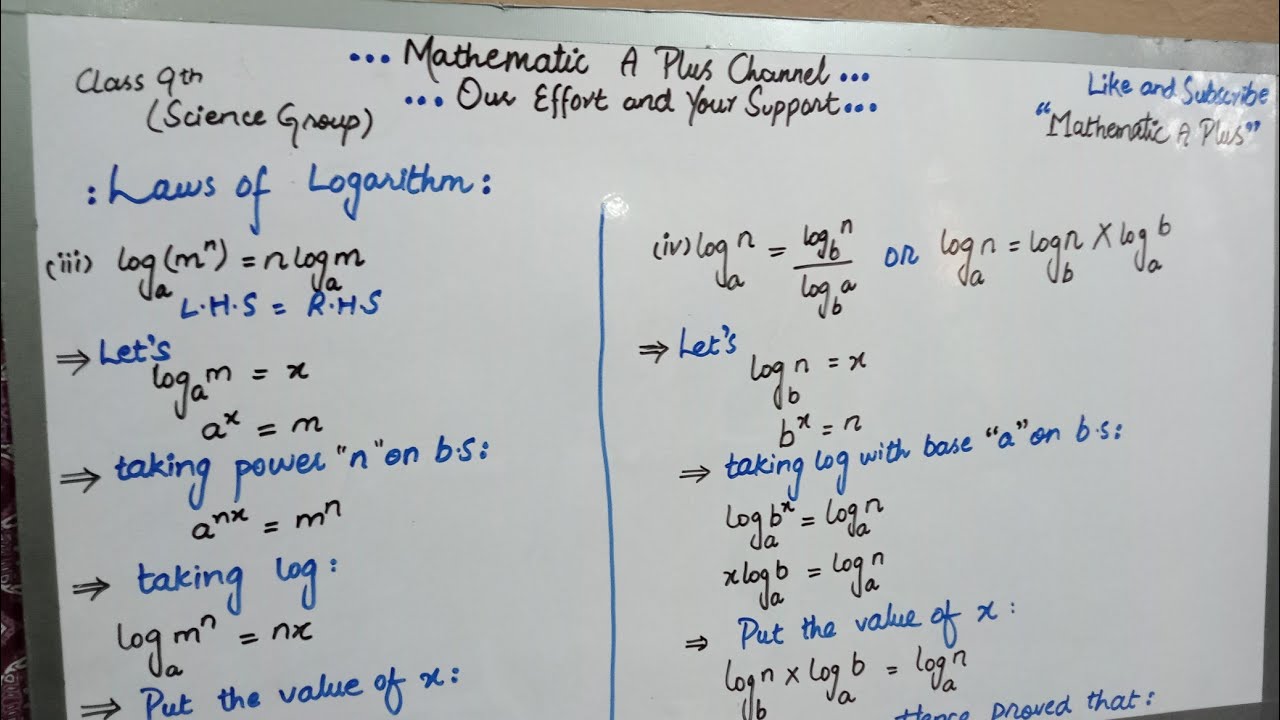 Class 9th
(Science Group)
... Mathematic A Plus Channel ...
... Our Effort and Your Support ...
Like and Subscribe
"Mathematic A Plus"
: Laws of Logarithm :
(iii) logₐ(mⁿ) = n logₐm
L.H.S = R.H.S
⇒ Let's
logₐm = x
aˣ = m
⇒ taking power "n" on b.s :
aⁿˣ = mⁿ
⇒ taking log :
logₐmⁿ = nx
⇒ Put the value of x :
(iv) logₐn = log_b n / log_b a or logₐn = log_b n × logₐb
⇒ Let's
log_b n = x
bˣ = n
⇒ taking log with base "a" on b.s :
logₐbˣ = logₐn
x logₐb = logₐn
⇒ Put the value of x :
log_b n × logₐb = logₐn
Hence proved that :